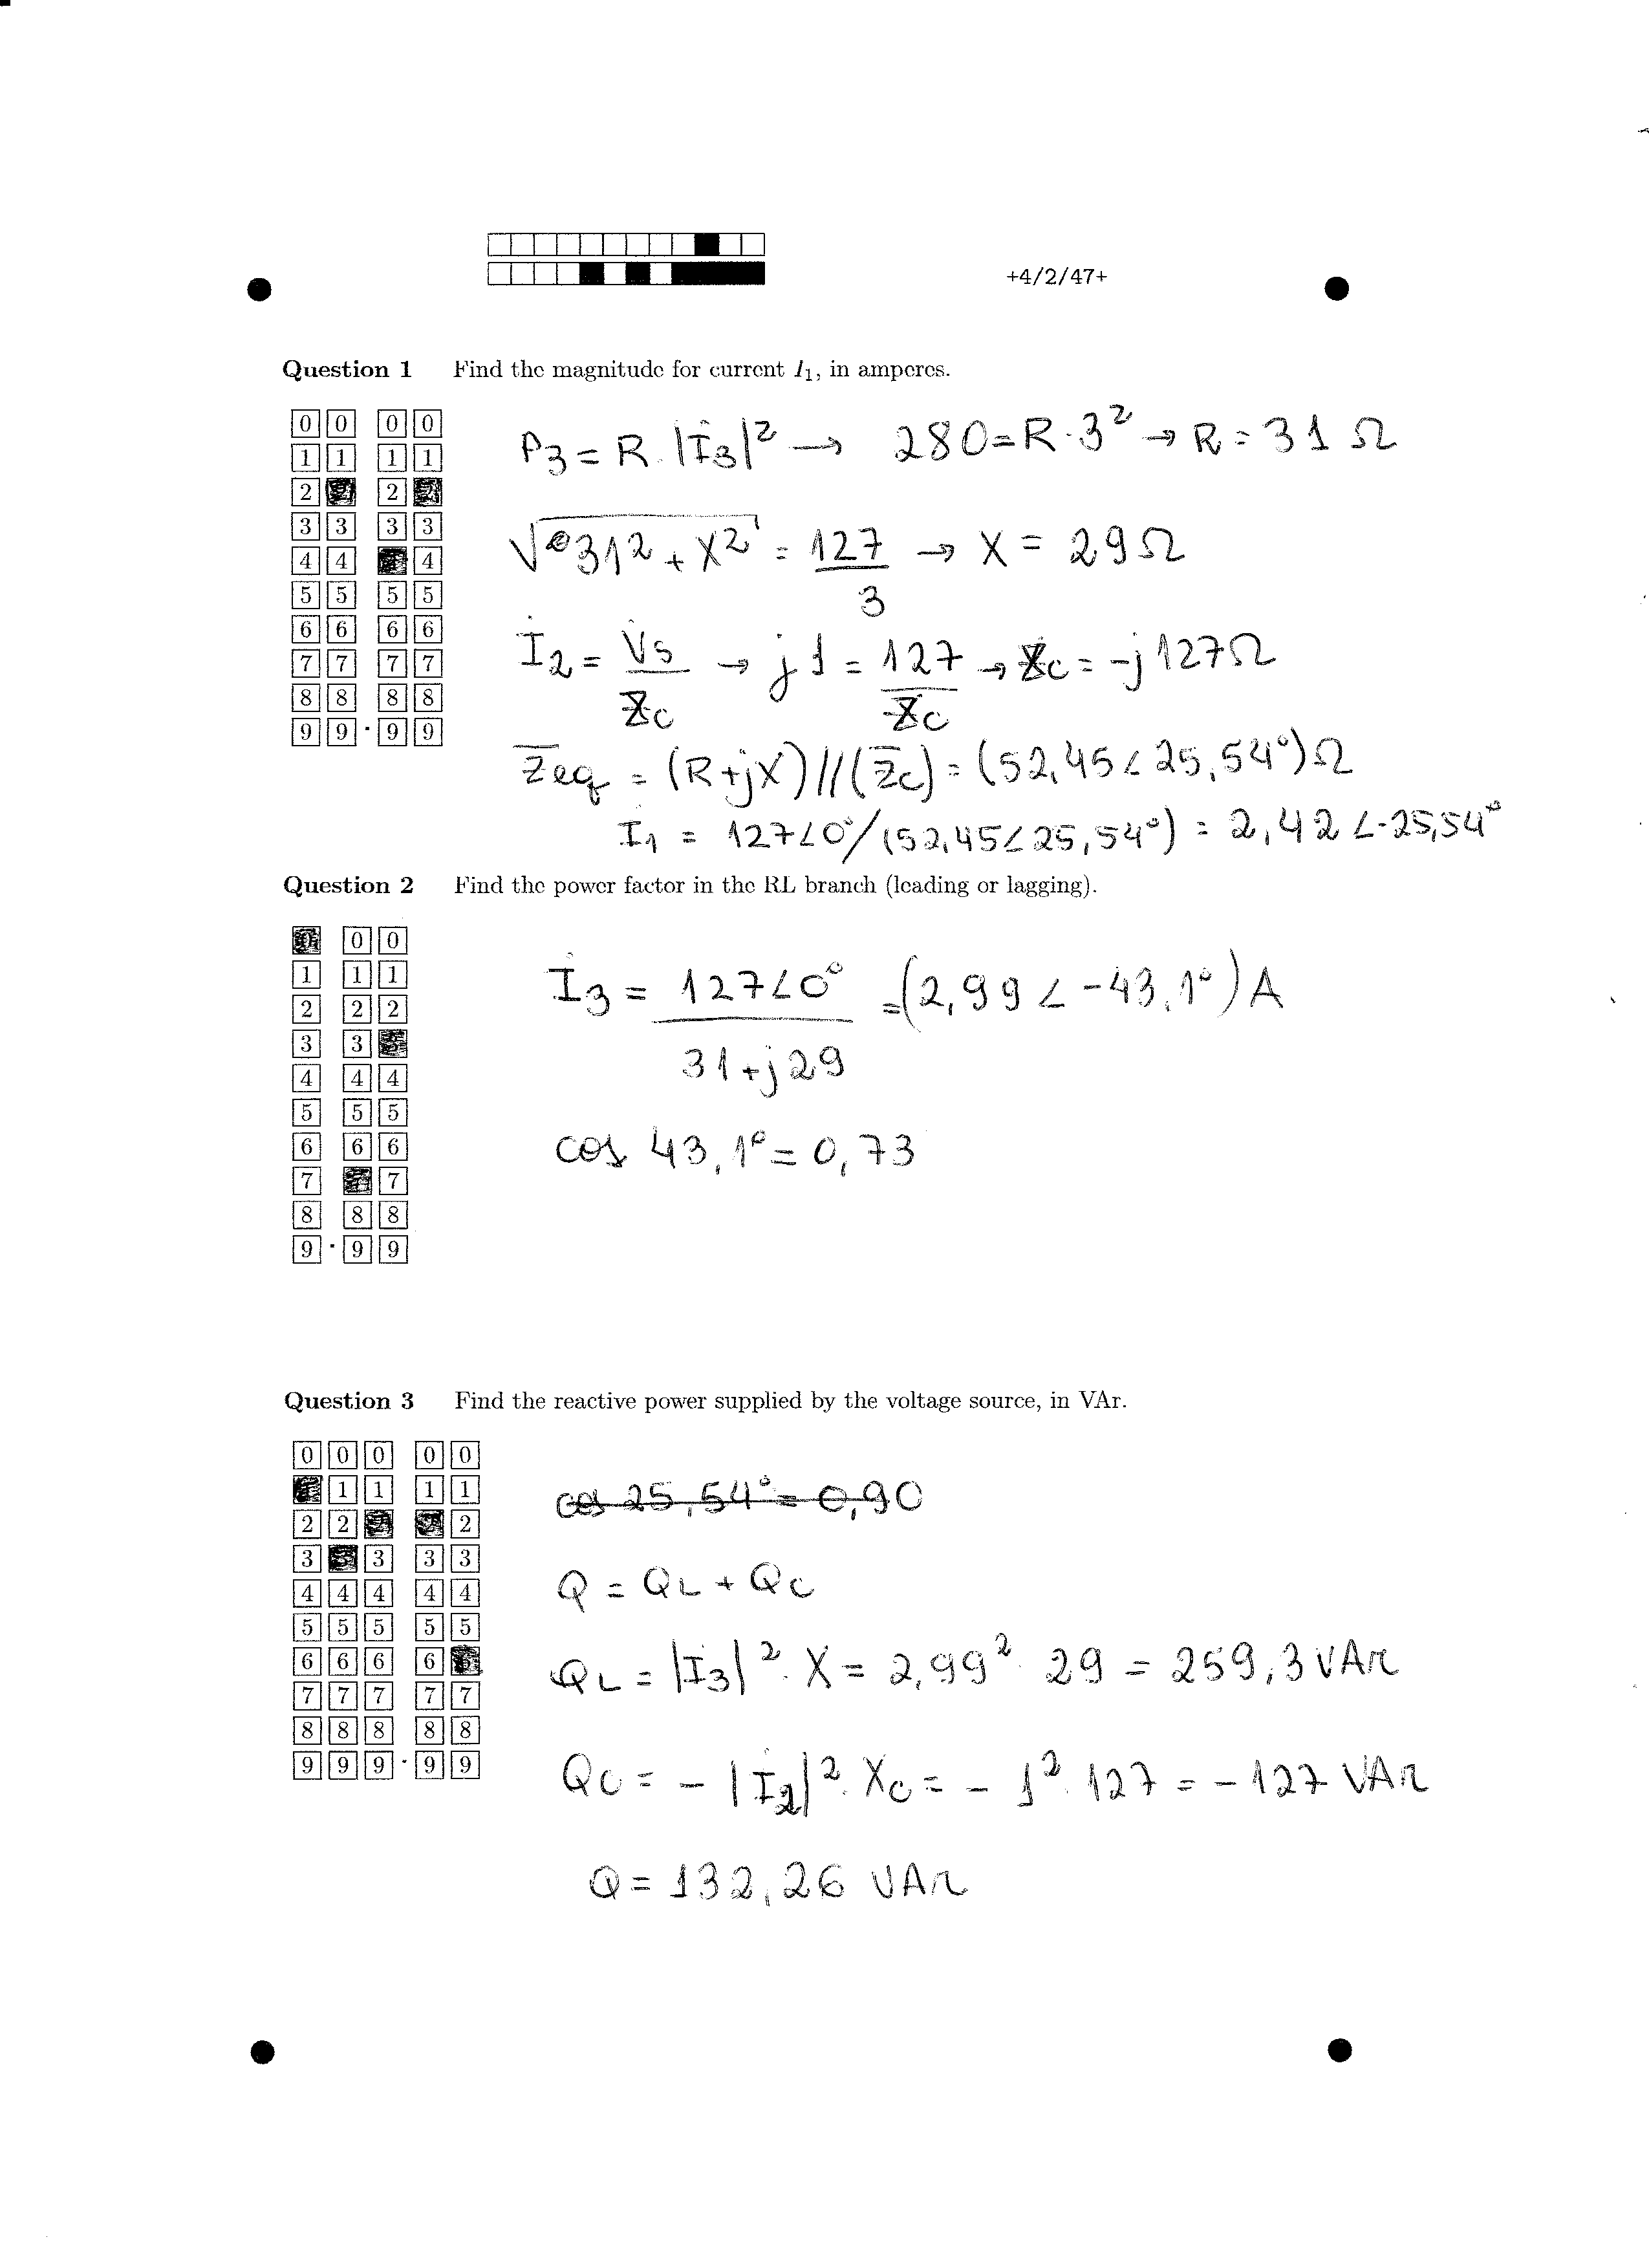 +4/2/47+
Question 1 Find the magnitude for current I₁, in amperes.
0 0 0 0
1 1 1 1
2 2
3 3 3 3
4 4 4
5 5 5 5
6 6 6 6
7 7 7 7
8 8 8 8
9 9 . 9 9
P3 = R.|İ3|² → 280 = R·3² → R = 31 Ω
√31² + X² = 127/3 → X = 29Ω
İ2 = V̇s/Z̅c → j1 = 127/Z̅c → Z̅c = -j127Ω
Z̅eq = (R+jX)//(Z̅c) = (52,45∠25,54°)Ω
İ1 = 127∠0°/(52,45∠25,54°) = 2,42∠-25,54°
Question 2 Find the power factor in the RL branch (leading or lagging).
0 0
1 1 1
2 2 2
3 3
4 4 4
5 5 5
6 6 6
7 7
8 8 8
9 . 9 9
İ3 = 127∠0°/31+j29 = (2,99∠-43,1°)A
cos 43,1° = 0,73
Question 3 Find the reactive power supplied by the voltage source, in VAr.
0 0 0 0 0
1 1 1 1
2 2 2
3 3 3 3
4 4 4 4 4
5 5 5 5 5
6 6 6 6
7 7 7 7 7
8 8 8 8 8
9 9 9 . 9 9
cos 25,54° = 0,90
Q = QL + QC
QL = |İ3|².X = 2,99². 29 = 259,3 VAr
QC = -|İ2|².XC = -1². 127 = -127 VAr
Q = 132,26 VAr